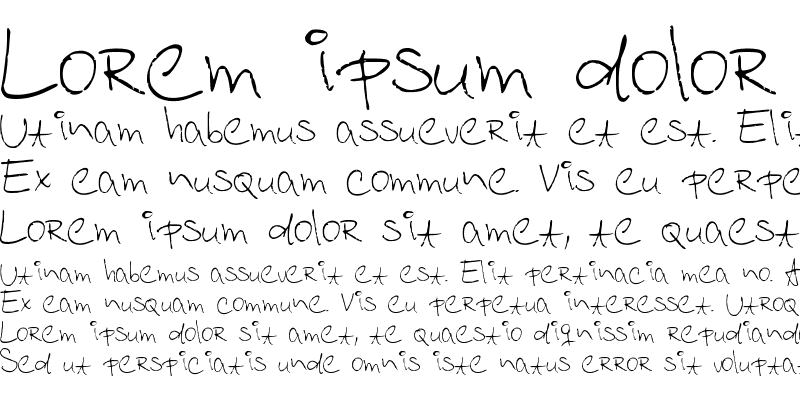 Lorem ipsum dolor
Utinam habemus assueverit et est. Elit
Ex eam nusquam commune. Vis eu perpe
Lorem ipsum dolor sit amet, te quaest
Utinam habemus assueverit et est. Elit pertinacia mea no. A
Ex eam nusquam commune. Vis eu perpetua interesset. Utroq
Lorem ipsum dolor sit amet, te quaestio dignissim repudianda
Sed ut perspiciatis unde omnis iste natus error sit voluptat